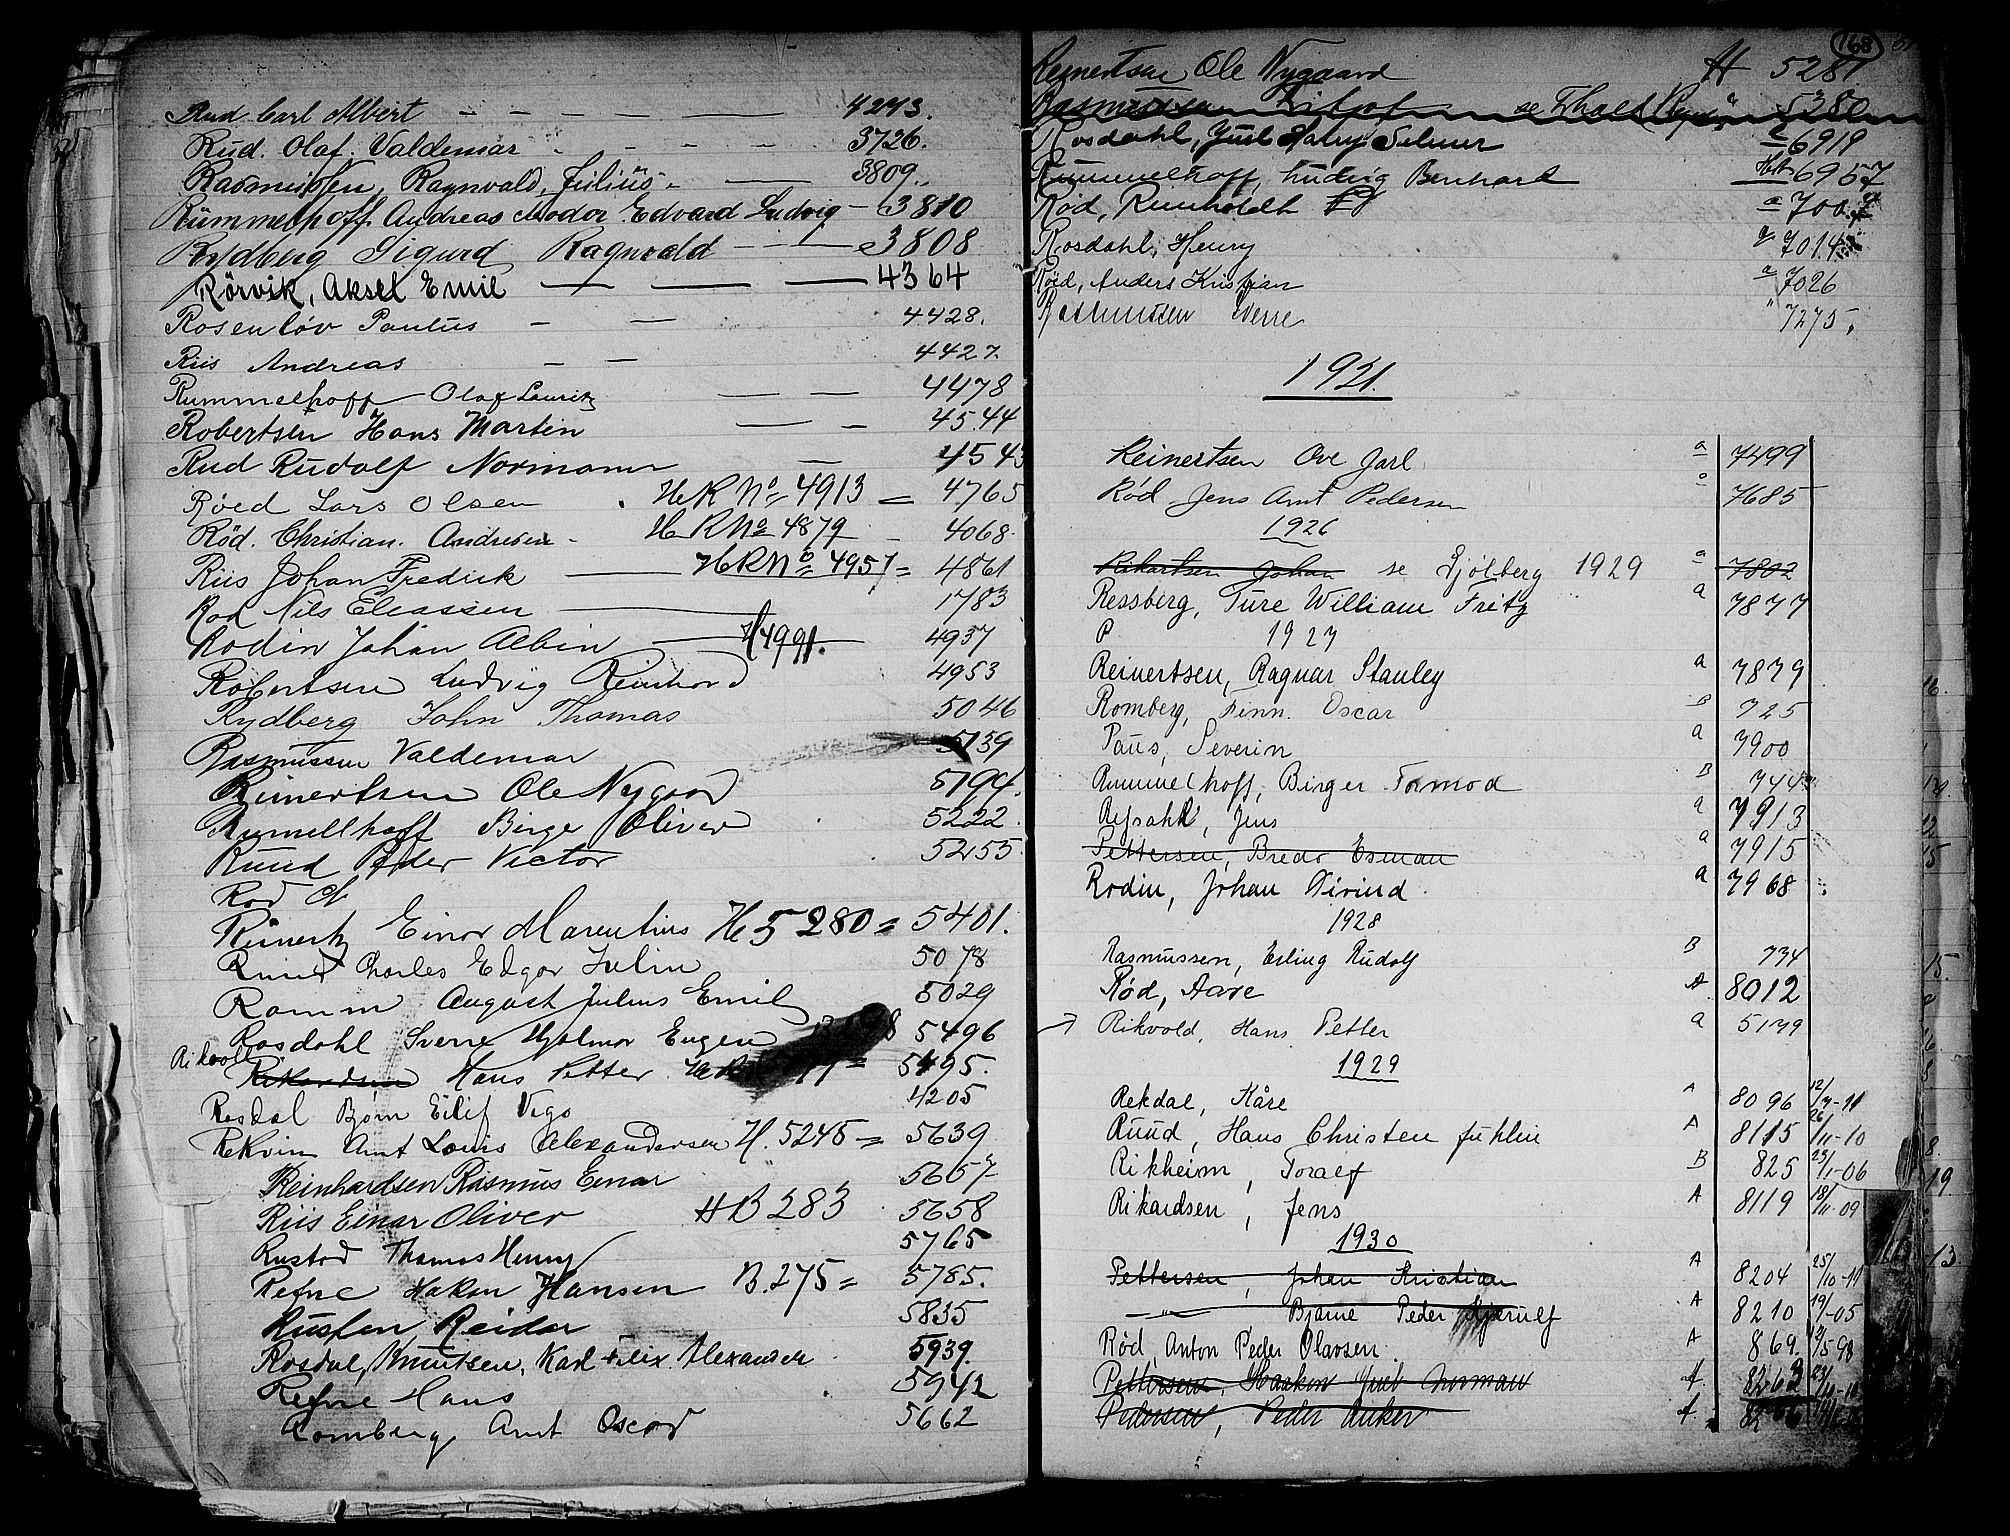 Rud Carl Albert 4273.
Rud. Olaf. Valdemar 3726.
Rasmussen, Ragnvald, Julius 3809.
Rummelhoff. Andreas Teodor Edvard Ludvig 3810
Rydberg Sigurd Ragnvald 3808
Rörvik, Aksel Emil 4364
Rosenlöv Paulus 4428.
Riis Andreas 4427.
Rummelhoff Olaf Lauritz 4478
Robertsen Hans Martin 4544
Rud Rudolf Normann 4543
Röed Lars Olsen HR No 4913 = 4765
Röd. Christian. Andresen HR No 4879 4068.
Riis Johan Fredrik HR No 4957 = 4861
Rod Nils Eleassen 1783
Rodin Johan Albin H 4991. 4937
Robertsen Ludvig Reinhard 4953
Rydberg John Thomas 5046
Rasmussen Valdemar 5139
Reinertsen Ole Nygaard 5194.
Rumellhoff Birger Oliver 5222.
Ruud Peder Victor 5253
Rod N
Reinertz Einar Marentius H 5280 = 5401.
Ruud Charles Edgar Julin 5078
Ramm August Julius Emil 5029
Rosdahl Sverre Hjalmar Eugen 5496
Rikvold Rikardsen Hans Petter 5495.
Rosdal Bjørn Eilif Vigo 4205
Rekvin Arnt Louis Alexandersen H. 5245 = 5639
Reinhardsen Rasmus Einar 5657
Riis Einar Oliver H B 283 5658
Rustad Thomas Henry 5765
Refne Hakon Hansen B. 275 = 5785.
Rusten, Reidar 5835
Rosdal, Knutsen, Karl Felix Alexander 5939.
Refne Hans 5942
Romberg Arnt Oscar 5662
168
Reinertsen Ole Nygaard H 5281
Rasmussen se Thald 5380
Rosdahl, Juul Harry Selmer a 6919
Rummelhoff, Ludvig Bernhard 6957
Rød, Reinholdh a 700
Rosdahl, Henry a 7014
Röd, Anders Kristian a 7026
Rasmussen Sverre " 7275.
1921.
Reinertsen Ove Jarl a 7499
Rød Jens Arnt Pedersen a 7685
1926
Rikartsen Johan se Gjölberg 1929 a 7802
Ressberg, Ture William Fritz a 7877
P 1927
Reinertsen, Ragnar Stanley a 7879
Romberg, Finn. Oscar B 725
Paus, Severin a 7900
Rummelhoff, Birger Tormod B 744
Refsahl, Jens a 7913
Pettersen, Bredo Esman a 7915
Rodin, Johan Eivind a 7968
1928
Rasmussen, Erling Rudolf B 734
Rød, Aare A 8012
Rikvold, Hans Petter a 5139
1929
Rekdal, Kåre A 8096 12/7-11
Ruud, Hans Christen Juhlin A 8115 26/11-10
Rikheim, Toralf B 825 25/1-06
Rikardsen, Jens A 8119 18/11-09
1930
Pettersen, Johan Kristian A 8204 25/10-11
—"— Bjarne Peder Hjerulf A 8210 19/1-05
Rød, Anton Peder Olavsen. A 869. /5-98
Pettersen, Haakon Juel Norman A. 8263
Pedersen, Peder Anker A.